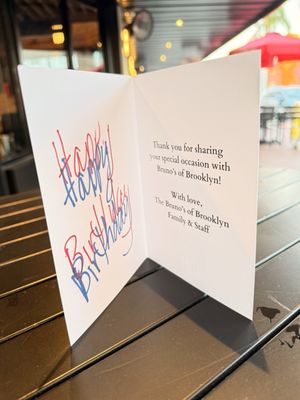 Happy
Birthday
Thank you for sharing
your special occasion with
Bruno's of Brooklyn!
With love,
The Bruno's of Brooklyn
Family & Staff